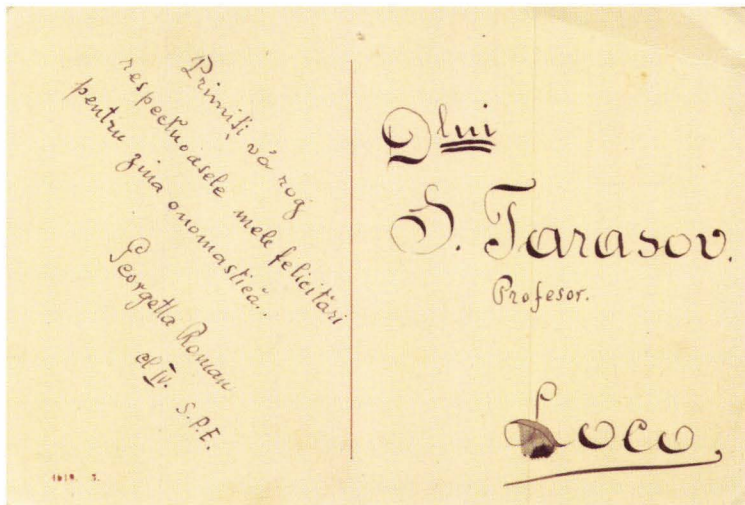 Primiți vă rog
respectuoasele mele felicitări
pentru zina onomastică..
Georgetta Roman
cl IV. S.P.E.
Dlui
S. Tarasov.
Profesor.
Loco